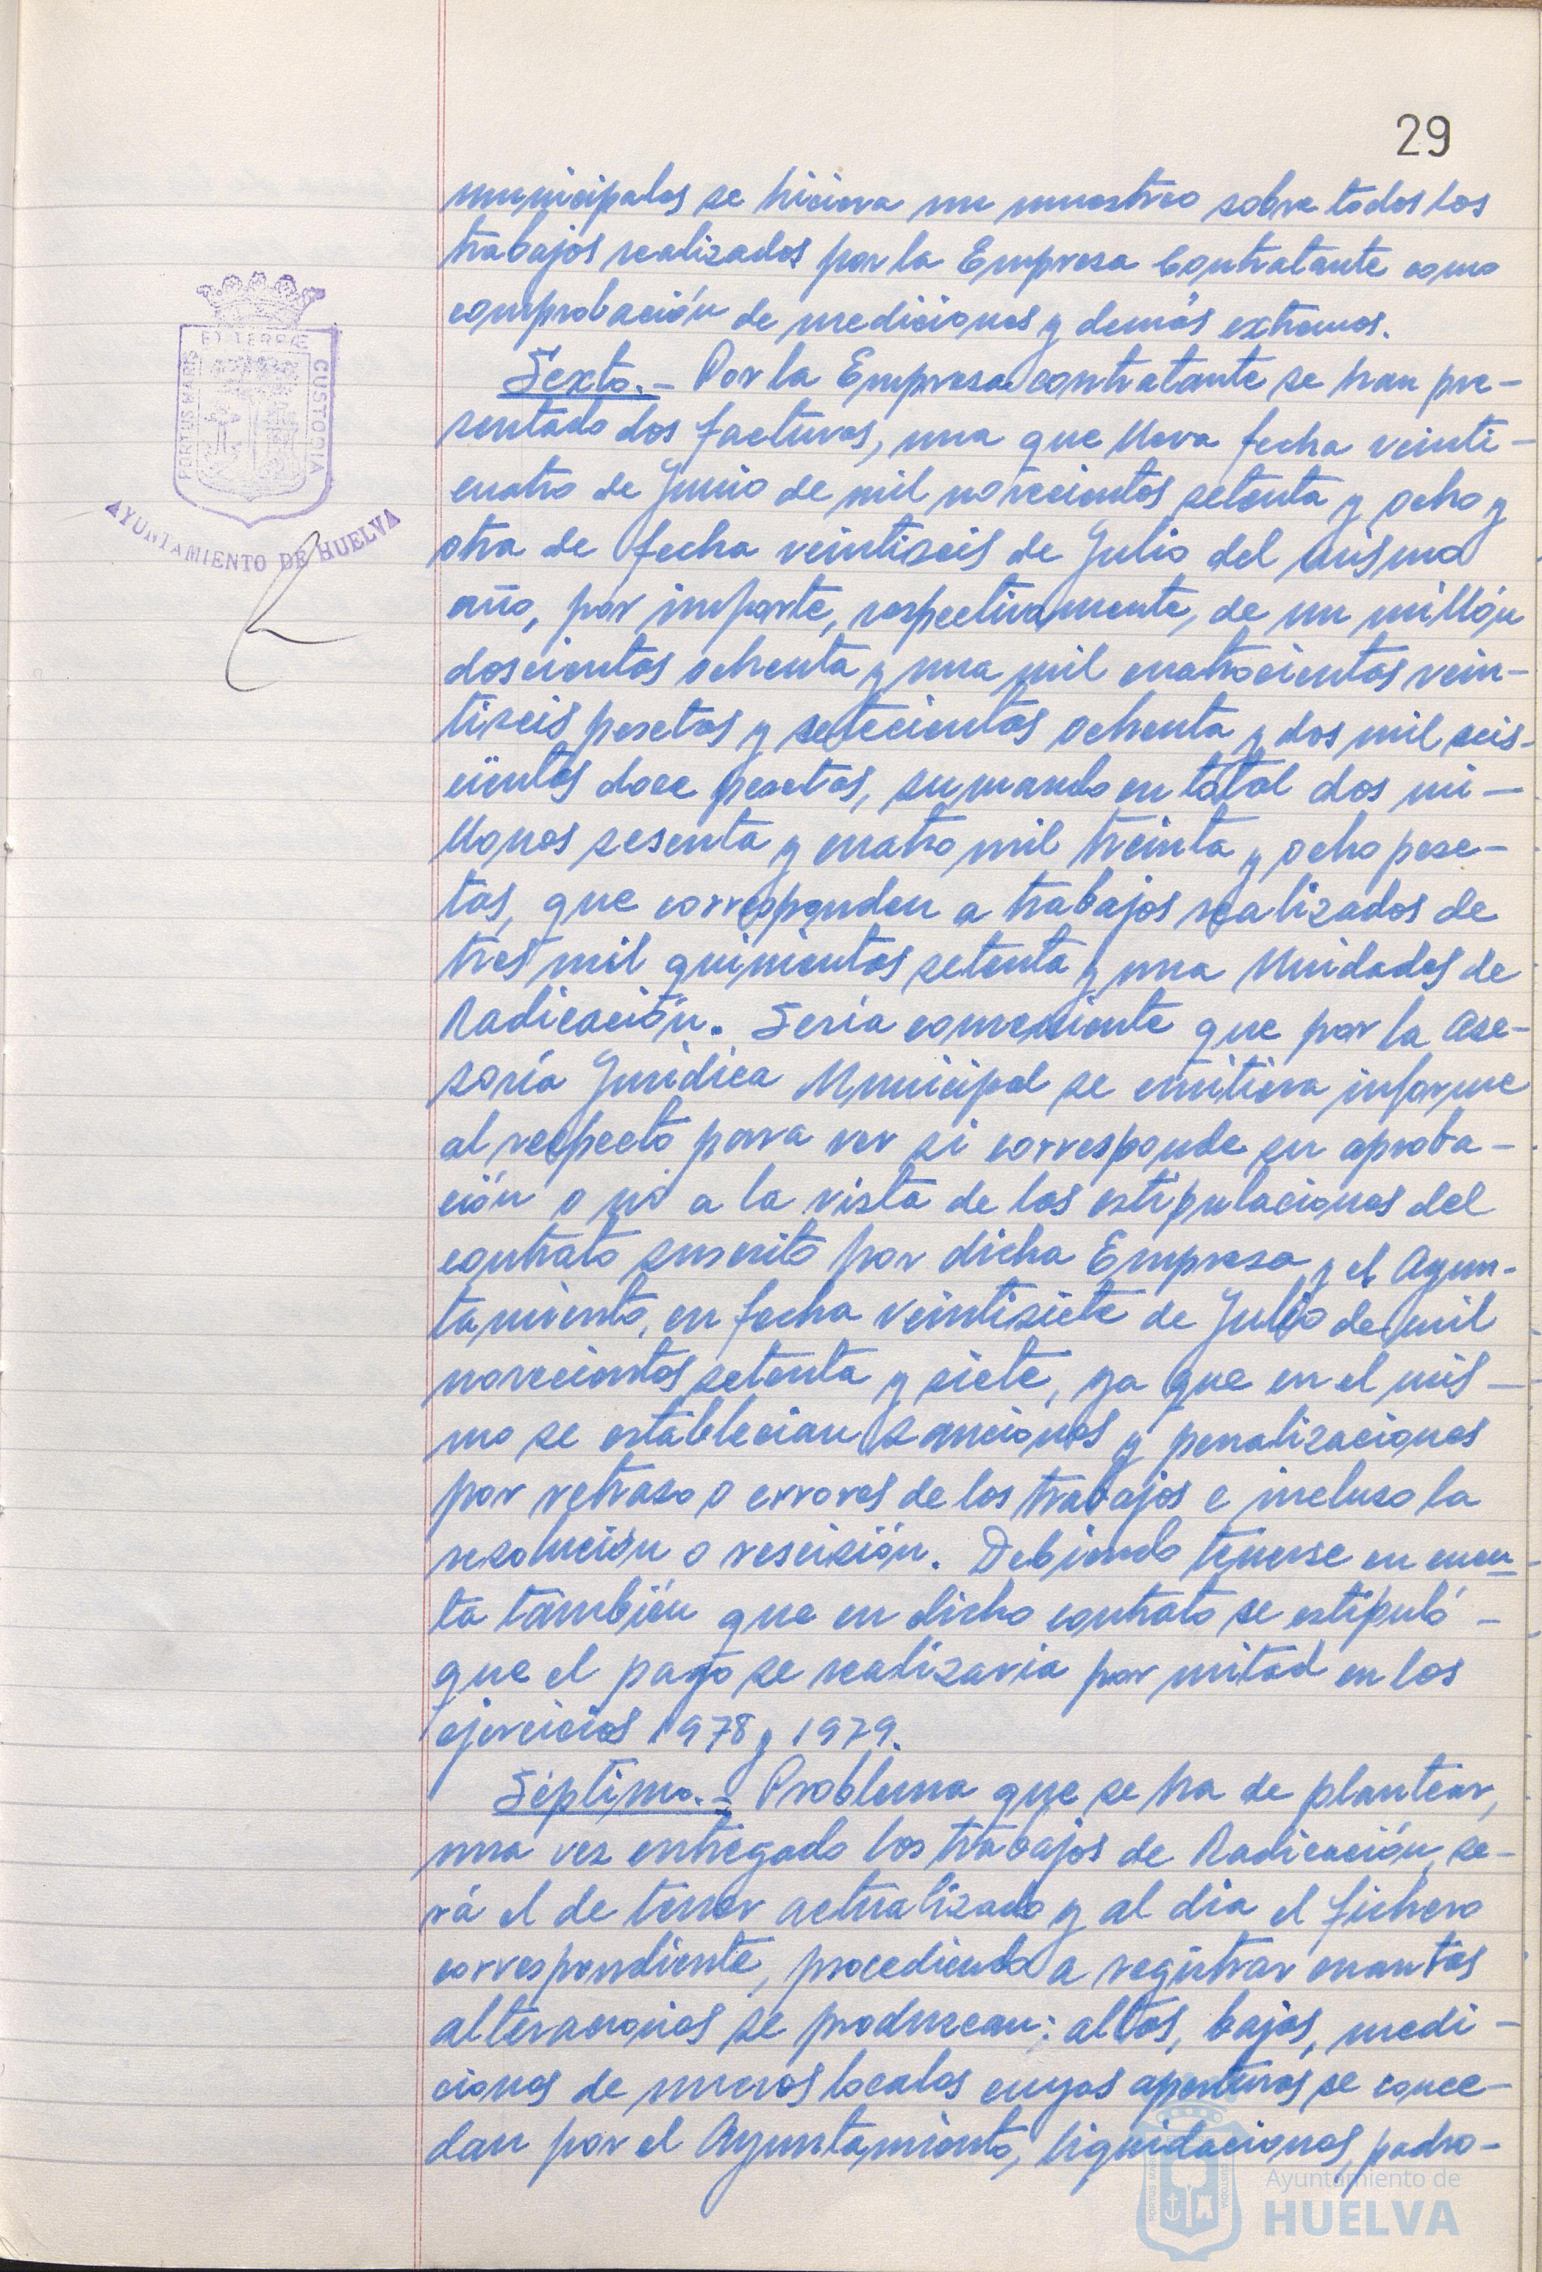 29
municipales se hiciera un muestreo sobre todos los
trabajos realizados por la Empresa Contratante como
comprobación de mediciones y demás extremos.
Sexto.- Por la Empresa contratante se han pre-
sentado dos facturas, una que lleva fecha veinti-
cuatro de Junio de mil novecientos setenta y ocho y
otra de fecha veintiseis de Julio del mismo
año, por importe, respectivamente, de un millón
doscientas ochenta y una mil cuatrocientas vein-
tiseis pesetas y setecientas ochenta y dos mil seis-
cientas doce pesetas, sumando en total dos mi-
llones sesenta y cuatro mil treinta y ocho pese-
tas, que corresponden a trabajos realizados de
tres mil quinientas setenta y una Unidades de
Radicación. Sería conveniente que por la Ase-
soría Jurídica Municipal se emitiera informe
al respecto para ver si corresponde su aproba-
ción o no a la vista de las estipulaciones del
contrato suscrito por dicha Empresa y el Ayun-
tamiento, en fecha veintisiete de Julio de mil
novecientos setenta y siete, ya que en el mis-
mo se establecian sanciones y penalizaciones
por retraso o errores de los trabajos e incluso la
resolución o rescisión. Debiendo tenerse en cuen-
ta también que en dicho contrato se estipuló -
que el pago se realizaria por mitad en los
ejercicios 1978 y 1979.
Séptimo.- Problema que se ha de plantear,
una vez entregado los trabajos de Radicación, se-
rá el de tener actualizado y al dia el fichero
correspondiente, procediendo a registrar cuantas
alteraciones se produzcan: altas, bajas, medi-
ciones de nuevos locales cuyas aperturas se conce-
dan por el Ayuntamiento, liquidaciones, padro-
PORTUS MARIS ET TERRAE CUSTODIA
AYUNTAMIENTO DE HUELVA
Ayuntamiento de
HUELVA